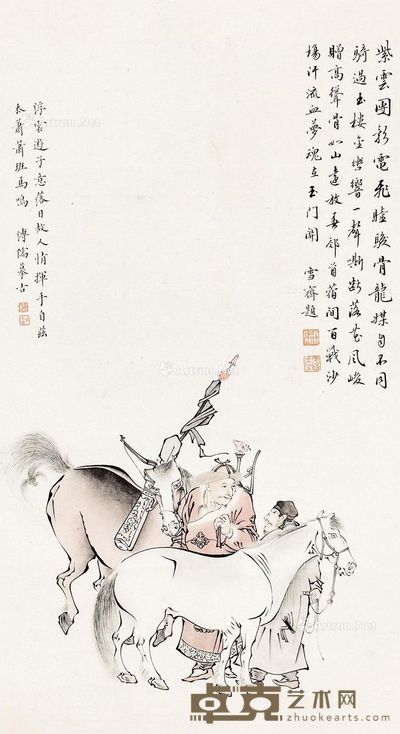 紫雲團影電飛瞳駿骨龍媒自不同
騎過玉樓金轡響一聲嘶斷落花風峻
嶒高聳骨如山遠放春郊苜蓿間百戰沙
場汗流血夢魂在玉門關 雪齋題
浮雲遊子意落日故人情揮手自茲
去蕭蕭班馬鳴 溥儒摹古
Artron.Net
Artron.Net
Artron.Net
卓克艺术网
zhuokearts.com